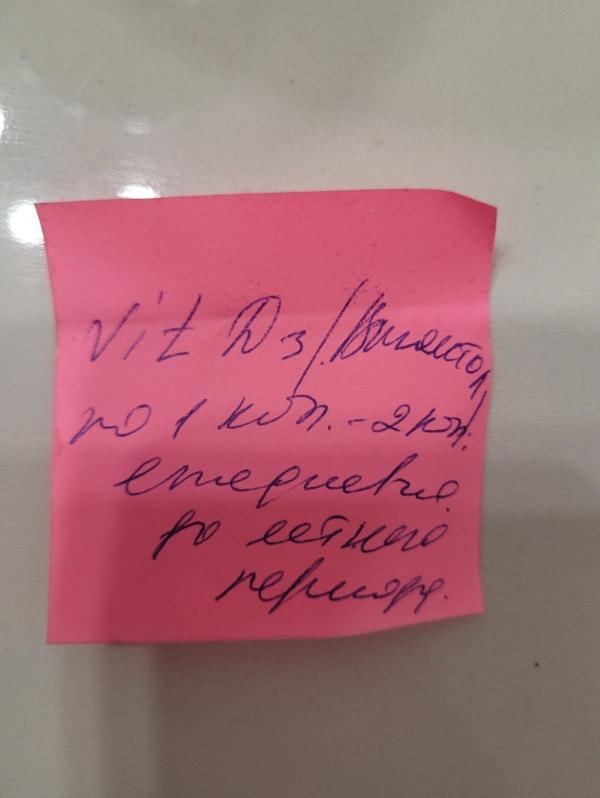 Vit D3 / Вигантол
по 1 кап. - 2 кап.
ежедневно
до летнего
периода.